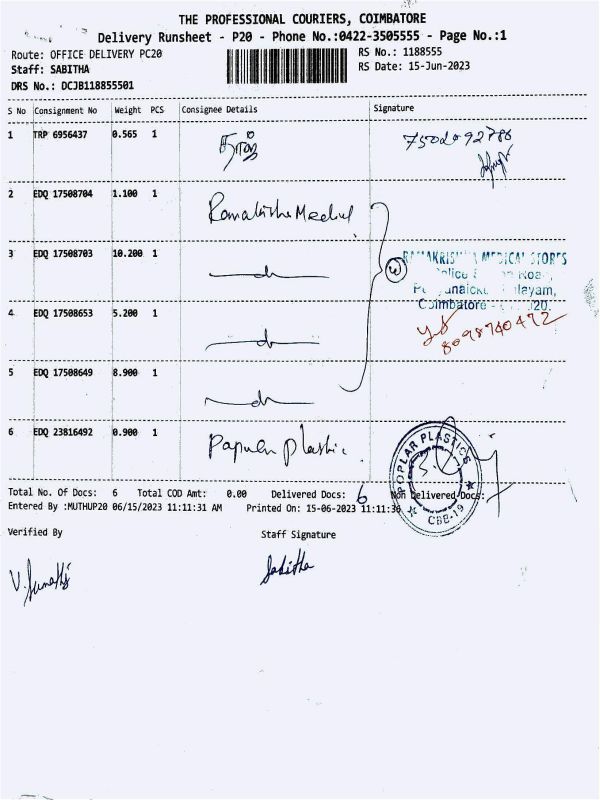 THE PROFESSIONAL COURIERS, COIMBATORE
Delivery Runsheet - P20 - Phone No.:0422-3505555 - Page No.:1
Route: OFFICE DELIVERY PC20
RS No.: 1188555
Staff: SABITHA
RS Date: 15-Jun-2023
DRS No.: DCJB118855501
S No Consignment No Weight PCS Consignee Details Signature
1 TRP 6956437 0.565 1
2 EDQ 17508704 1.100 1 Ramakrishna Medical
3 EDQ 17508703 10.200 1 do
4 EDQ 17508653 5.200 1 do
5 EDQ 17508649 8.900 1 do
RAMAKRISHNA MEDICAL STORES
Coimbatore
8098740472
6 EDQ 23816492 0.900 1 Plastic
POPLAR PLASTICS
CBE-19
Total No. Of Docs: 6 Total COD Amt: 0.00 Delivered Docs: 6 Non Delivered Docs:
Entered By :MUTHUP20 06/15/2023 11:11:31 AM Printed On: 15-06-2023 11:11:36
Verified By Staff Signature
V. Sumathi Sabitha